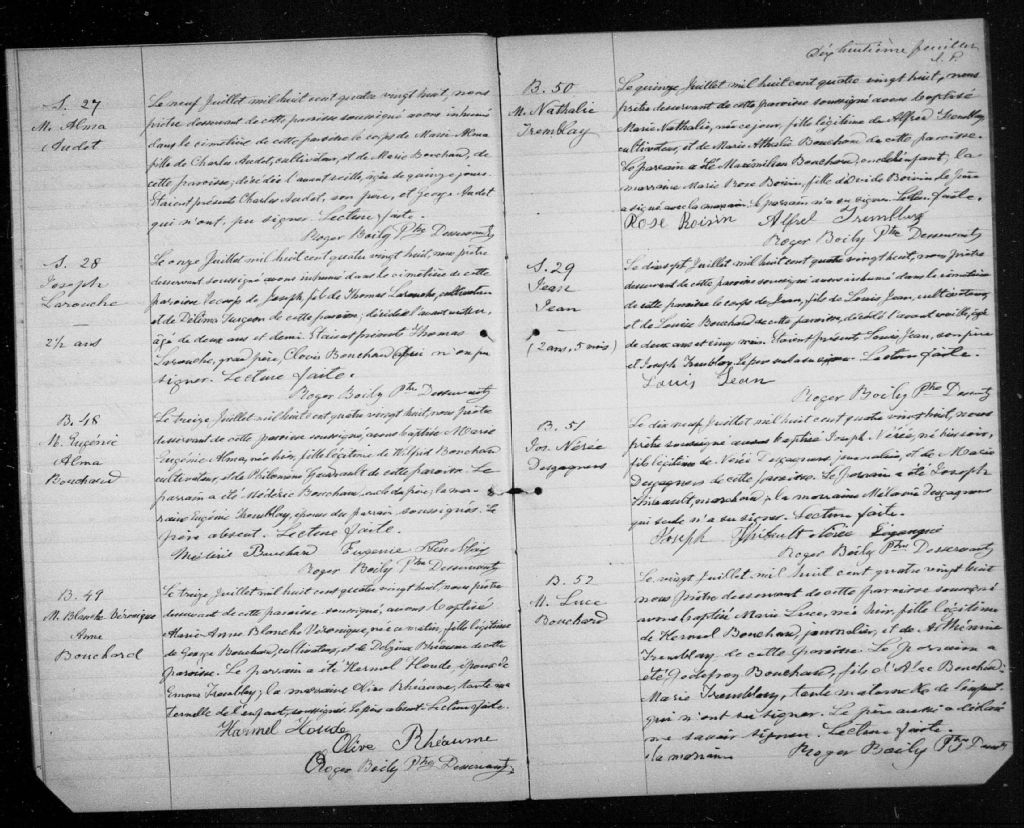 S. 27
M. Alma
Audet
Le neuf Juillet mil huit cent quatre vingt huit, nous
prêtre desservant de cette paroisse soussigné avons inhumé
dans le cimetière de cette paroisse le corps de Marie Alma
fille de Charles Audet, cultivateur, et de Marie Bouchard, de
cette paroisse; décédée l'avant veille, agée de quinze jours.
Etaient présents Charles Audet, son père, et George Audet
qui n'ont pu signer. Lecture faite.
Roger Boily Ptre Desservant
S. 28
Joseph
Larouche
—
2½ ans
Le onze Juillet mil huit cent quatre vingt huit, nous prêtre
desservant soussigné avons inhumé dans le cimetière de cette
paroisse le corps de Joseph, fils de Thomas Larouche, cultivateur
et de Délima Turgeon de cette paroisse; décédé l'avant veille,
âgé de deux ans et demi. Etaient présents Thomas
Larouche, grand père, Clovis Bouchard qui n'ont pu
signer. Lecture faite.
Roger Boily Ptre Desservant
B. 48
M. Eugénie
Alma
Bouchard
Le treize Juillet mil huit cent quatre vingt huit, nous prêtre
desservant de cette paroisse soussigné, avons baptisé Marie
Eugénie Alma, née hier, fille légitime de Wilfrid Bouchard
cultivateur, et de Philomène Girault de cette paroisse. Le
parrain a été Médéric Bouchard, oncle du père; la mar-
raine Eugénie Tremblay, épouse du parrain soussignés. Le
père absent. Lecture faite.
Médéric Bouchard Eugenie Tremblay
Roger Boily Ptre Desservant
B. 49
M. Blanche Véronique
Anne
Bouchard
Le treize Juillet mil huit cent quatre vingt huit, nous prêtre
desservant de cette paroisse soussigné, avons baptisé
Marie-Anne Blanche Véronique, née ce matin, fille légitime
de George Bouchard, cultivateur, et de Delzina Rhéaume de cette
paroisse. Le parrain a été Hermel Houde, époux de
Emma Tremblay; la marraine Olive Rhéaume, tante ma-
ternelle de l'enfant, soussignés. Le père absent. Lecture faite.
Harmel Houde
Olive Rhéaume
Roger Boily Ptre Desservant
Dix huitième feuillet
B. 50
M. Nathalie
Tremblay
Le quinze Juillet mil huit cent quatre vingt huit, nous
prêtre desservant de cette paroisse soussigné avons baptisé
Marie Nathalie, née ce jour, fille légitime de Alfred Tremblay
cultivateur, et de Marie Athalie Bouchard de cette paroisse.
Le parrain a été Maximilien Bouchard, oncle de l'enfant; la
marraine Marie Rose Boivin, fille d'Ovide Boivin. Le père
a signé avec la marraine. Le parrain n'a su signer. Lecture faite.
Rose Boivin Alfrel Tremblay
Roger Boily Ptre Desservant
S. 29
Jean
Jean
(2 ans, 5 mois)
Le dix sept Juillet mil huit cent quatre vingt huit, nous prêtre
desservant de cette paroisse soussigné avons inhumé dans le cimetière
de cette paroisse le corps de Jean, fils de Louis Jean, cultivateur,
et de Louise Bouchard de cette paroisse, décédé l'avant veille, âgé
de deux ans et cinq mois. Etaient présents Louis Jean, son père
et Joseph Tremblay. Le père seul a su signer. Lecture faite.
Louis Jean
Roger Boily Ptre Desservant
B. 51
Jos. Nérée
Desgagners
Le dix neuf Juillet mil huit cent quatre vingt huit, nous
prêtre soussigné avons baptisé Joseph Nérée, né hier soir,
fils légitime de Nérée Desgagners, journalier, et de Marie
Desgagners de cette paroisse. Le parrain a été Joseph
Thibault, marchand; la marraine Mélanie Desgagners
qui seule n'a su signer. Lecture faite.
Joseph Thibault Nérée
Roger Boily Ptre Desservant
B. 52
M. Luce
Bouchard
Le vingt Juillet mil huit cent quatre vingt huit
nous prêtre desservant de cette paroisse soussigné
avons baptisé Marie Luce, née hier, fille légitime
de Hermel Bouchard, journalier, et de Arthémise
Tremblay de cette paroisse. Le parrain a
été Godefroy Bouchard, fils d'Alec Bouchard;
Marie Tremblay, tante maternelle de l'enfant
qui n'ont su signer. Le père aussi a déclaré
ne savoir signer. Lecture faite.
la marraine Roger Boily Ptre Desservant